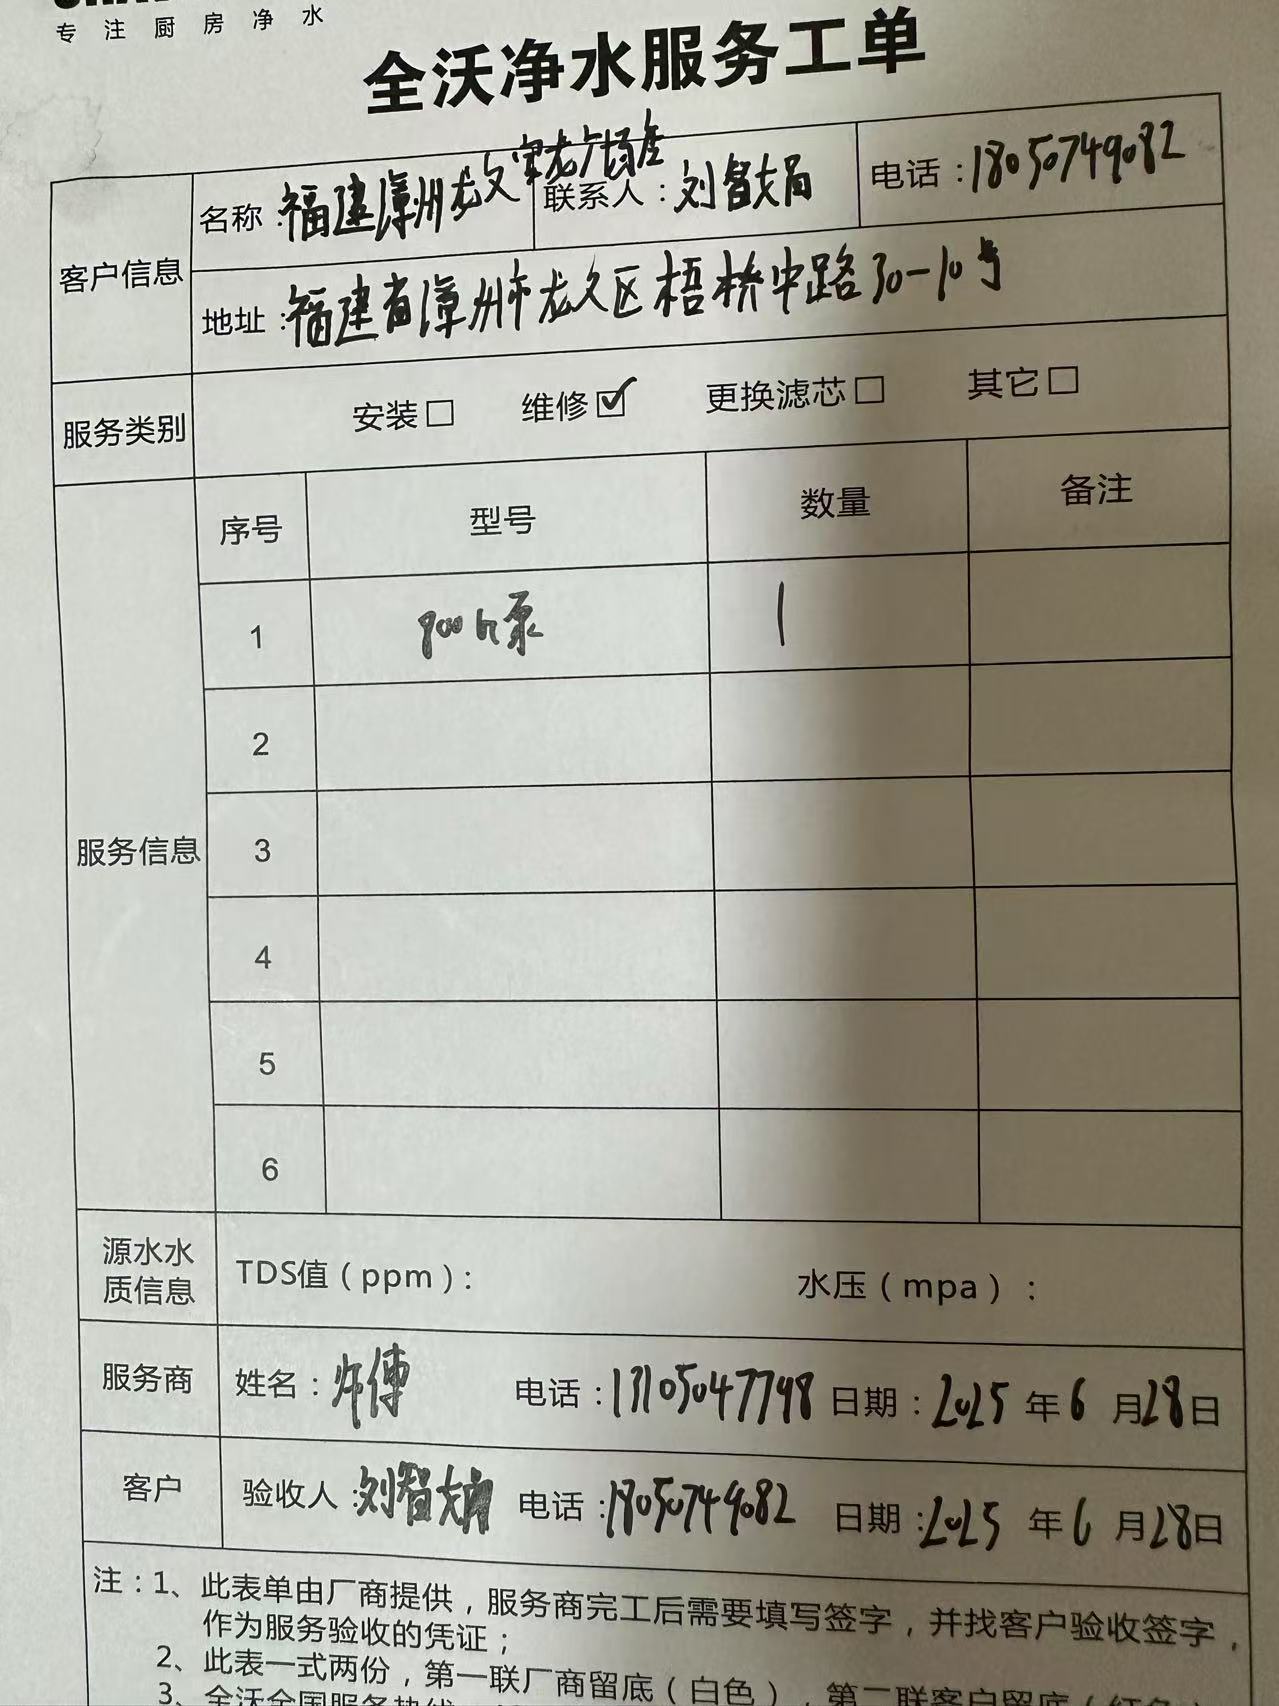 专注厨房净水
全沃净水服务工单
客户信息
名称：福建漳州龙文宝龙广场店 联系人：刘智 电话：18050749082
地址：福建省漳州市龙文区梧桥中路30-10号
服务类别 安装□ 维修☑ 更换滤芯□ 其它□
服务信息
序号 型号 数量 备注
1 900G泵 1
2
3
4
5
6
源水水
质信息
TDS值（ppm）： 水压（mpa）：
服务商 姓名：师傅 电话：13105047798 日期：2025年6月28日
客户 验收人：刘智 电话：18050749082 日期：2025年6月28日
注：1、此表单由厂商提供，服务商完工后需要填写签字，并找客户验收签字，
作为服务验收的凭证；
2、此表一式两份，第一联厂商留底（白色），第二联客户留底（红色
3、全沃全国服务热线